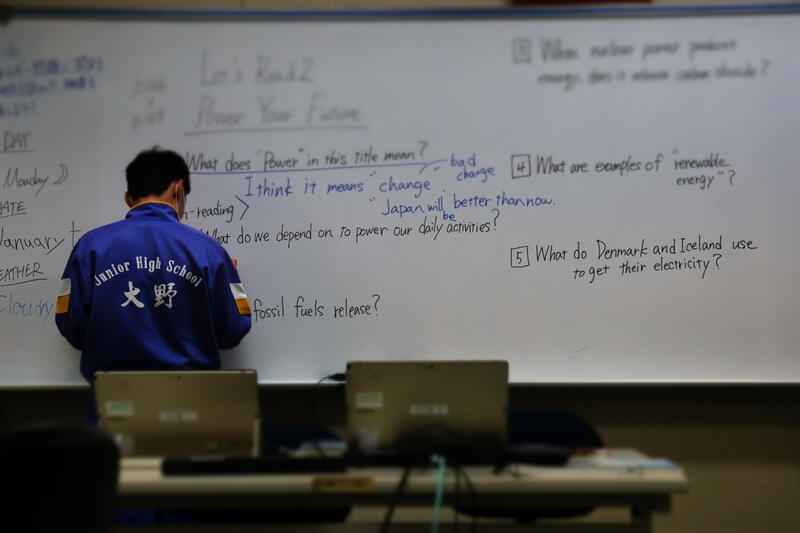 DAY
Monday
DATE
January
WEATHER
Cloudy
Let's Read 2
Power Your Future
What does "Power" in this title mean?
I think it means "change"
bad
change
"Japan will be better than now.
n-reading>
What do we depend on to power our daily activities?
fossil fuels release?
3 When nuclear power produces
energy, does it release carbon dioxide?
4 What are examples of "renewable
energy"?
5 What do Denmark and Iceland use
to get their electricity?
Junior High School
大野